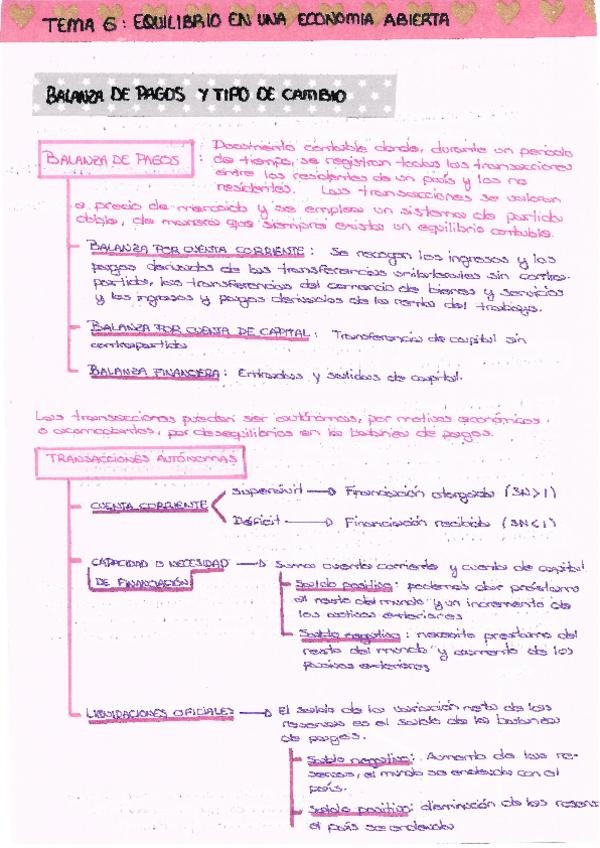 TEMA 6: EQUILIBRIO EN UNA ECONOMIA ABIERTA
BALANZA DE PAGOS Y TIPO DE CAMBIO
BALANZA DE PAGOS : Documento contable donde, durante un periodo
de tiempo, se registran todas las transacciones
entre los residentes de un país y los no
residentes. Las transacciones se valoran
a precio de mercado y se emplea un sistema de partida
doble, de manera que siempre exista un equilibrio contable.
BALANZA POR CUENTA CORRIENTE : Se recogen los ingresos y los
pagos derivados de las transferencias unilaterales sin contra-
partida, las transferencias del comercio de bienes y servicios
y los ingresos y pagos derivados de la renta del trabajo.
BALANZA POR CUENTA DE CAPITAL : Transferencias de capital sin
contrapartida
BALANZA FINANCIERA : Entradas y salidas de capital.
Las transacciones pueden ser autónomas, por motivos económicos
o acomodantes, por desequilibrios en la balanza de pagos.
TRANSACCIONES AUTÓNOMAS
CUENTA CORRIENTE
Superávit → Financiación otorgada (SN>1)
Déficit → Financiación recibida (SN<1)
CAPACIDAD O NECESIDAD → Suma cuenta corriente y cuenta de capital
DE FINANCIACIÓN
Saldo positivo: podemos dar préstamo
al resto del mundo y un incremento de
los activos exteriores
Saldo negativo: necesita prestamo del
resto del mundo y aumento de los
pasivos exteriores
LIQUIDACIONES OFICIALES → El saldo de la variación neta de las
reservas es el saldo de la balanza
de pagos.
Saldo negativo: Aumento de las re-
servas, el mundo se endeuda con el
país.
Saldo positivo: disminución de las reserv
el país se endeuda